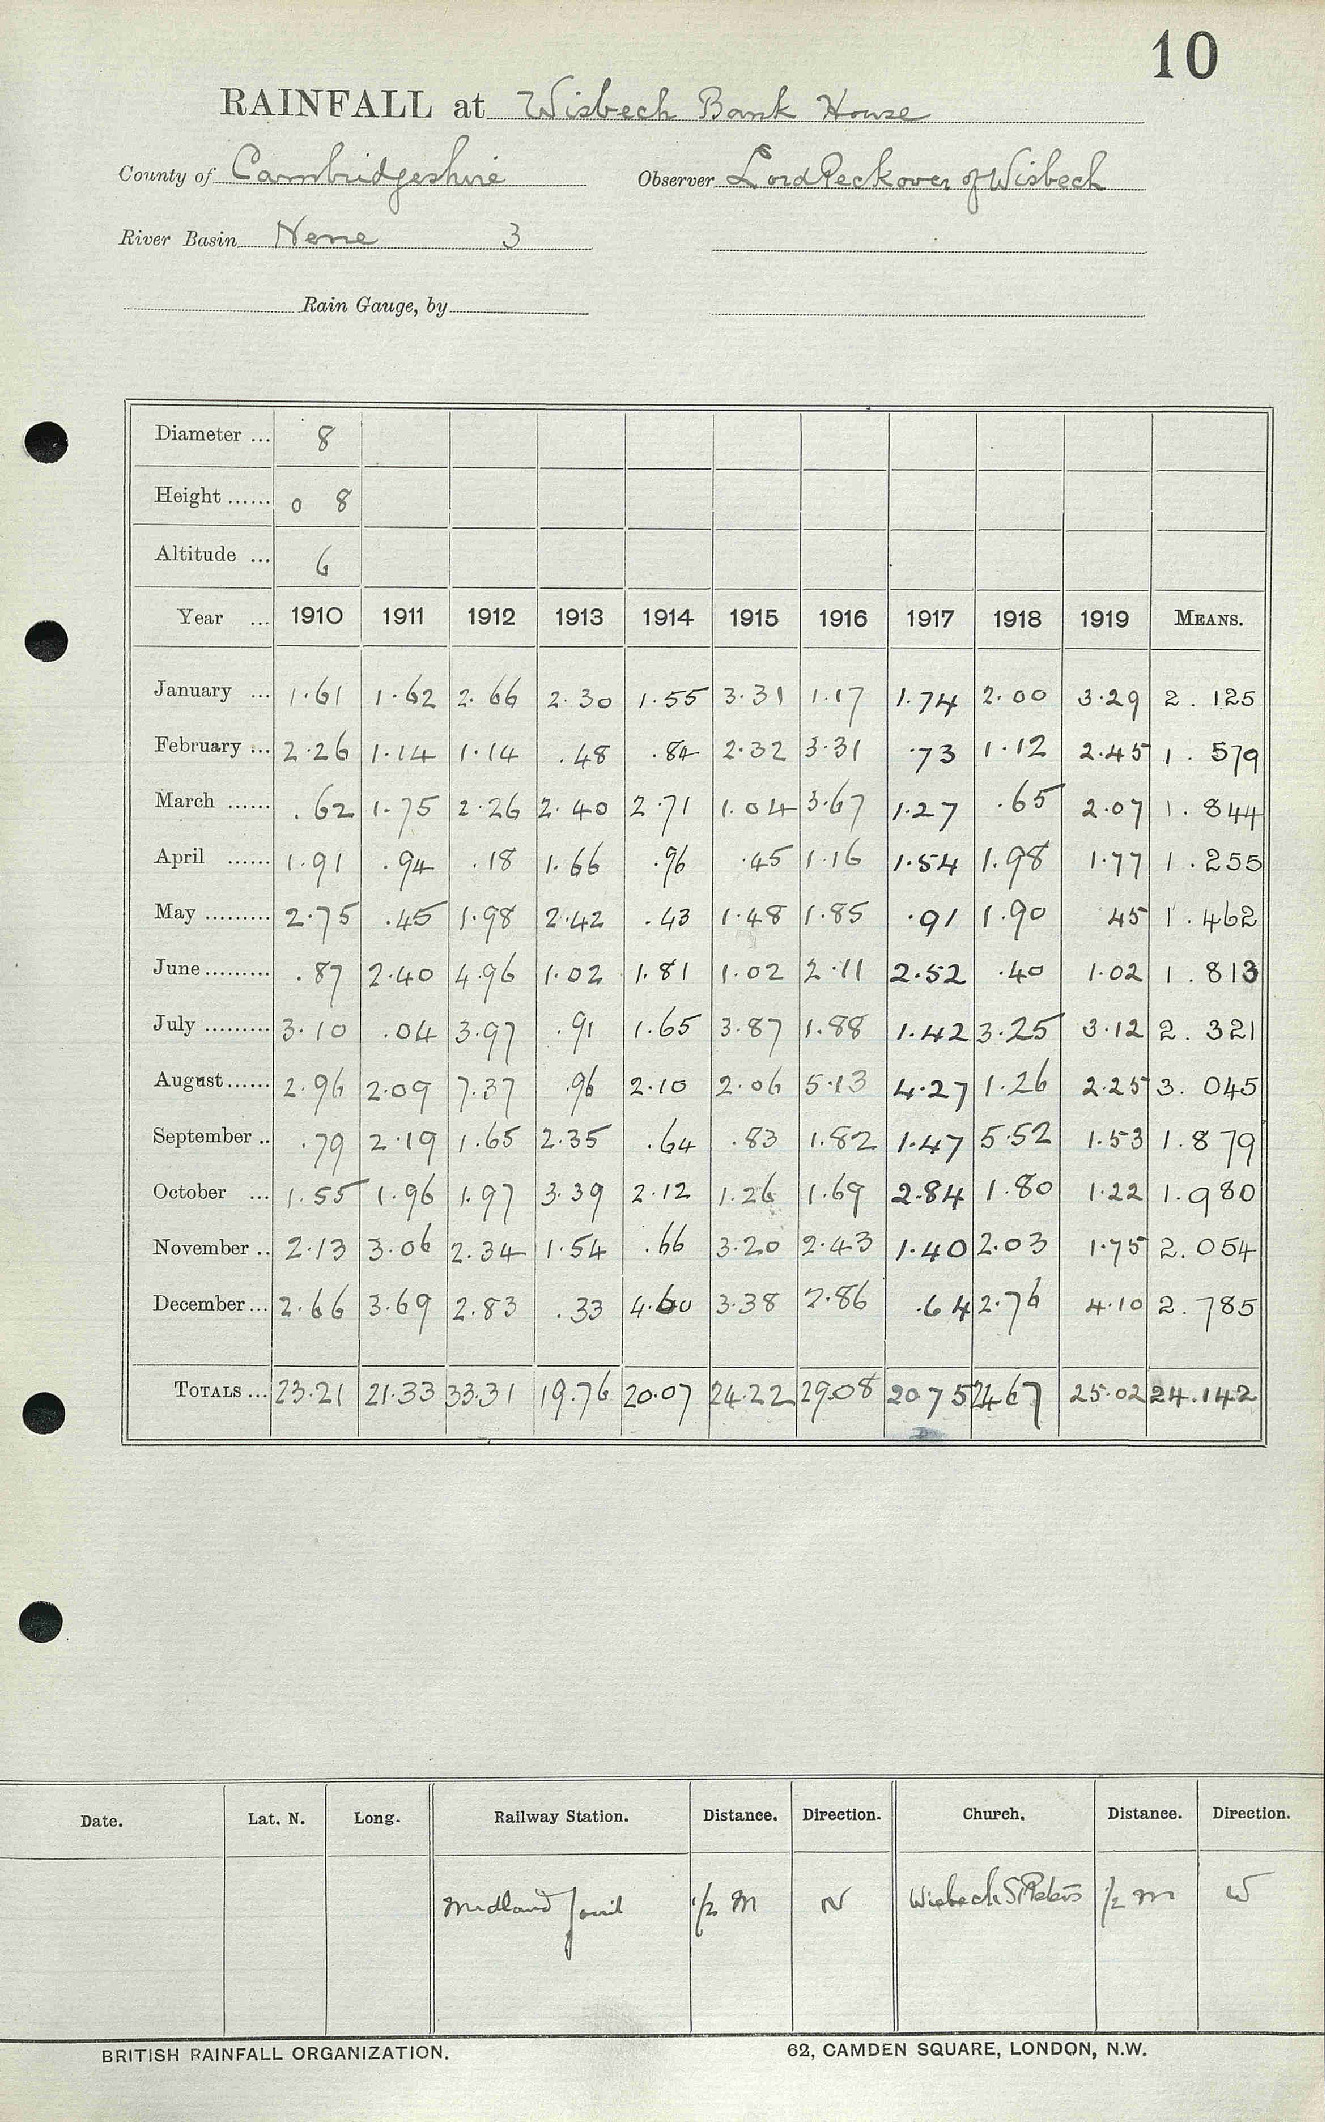 10
RAINFALL at Wisbech Bank House
County of Cambridgeshire Observer Lord Peckover of Wisbech
River Basin Nene 3
Rain Gauge, by
Diameter ... 8
Height ...... 0 8
Altitude ... 6
Year ... 1910 1911 1912 1913 1914 1915 1916 1917 1918 1919 MEANS.
January ... 1.61 1.62 2.66 2.30 1.55 3.31 1.17 1.74 2.00 3.29 2.125
February ... 2.26 1.14 1.14 .48 .84 2.32 3.31 .73 1.12 2.45 1.579
March ...... .62 1.75 2.26 2.40 2.71 1.04 3.67 1.27 .65 2.07 1.844
April ...... 1.91 .94 .18 1.66 .96 .45 1.16 1.54 1.98 1.77 1.255
May ......... 2.75 .45 1.98 2.42 .43 1.48 1.85 .91 1.90 45 1.462
June ......... .87 2.40 4.96 1.02 1.81 1.02 2.11 2.52 .40 1.02 1.813
July ......... 3.10 .04 3.97 .91 1.65 3.87 1.88 1.42 3.25 3.12 2.321
August ...... 2.96 2.09 7.37 .96 2.10 2.06 5.13 4.27 1.26 2.25 3.045
September .. .79 2.19 1.65 2.35 .64 .83 1.82 1.47 5.52 1.53 1.879
October ... 1.55 1.96 1.97 3.39 2.12 1.26 1.69 2.84 1.80 1.22 1.980
November .. 2.13 3.06 2.34 1.54 .66 3.20 2.43 1.40 2.03 1.75 2.054
December ... 2.66 3.69 2.83 .33 4.60 3.38 2.86 .64 2.76 4.10 2.785
TOTALS ... 23.21 21.33 33.31 19.76 20.07 24.22 29.08 20.75 24.67 25.02 24.142
Date. Lat. N. Long. Railway Station. Distance. Direction. Church. Distance. Direction.
Midland 1/2 M N Wisbech St Peters 1/2 m W
BRITISH RAINFALL ORGANIZATION. 62, CAMDEN SQUARE, LONDON, N.W.